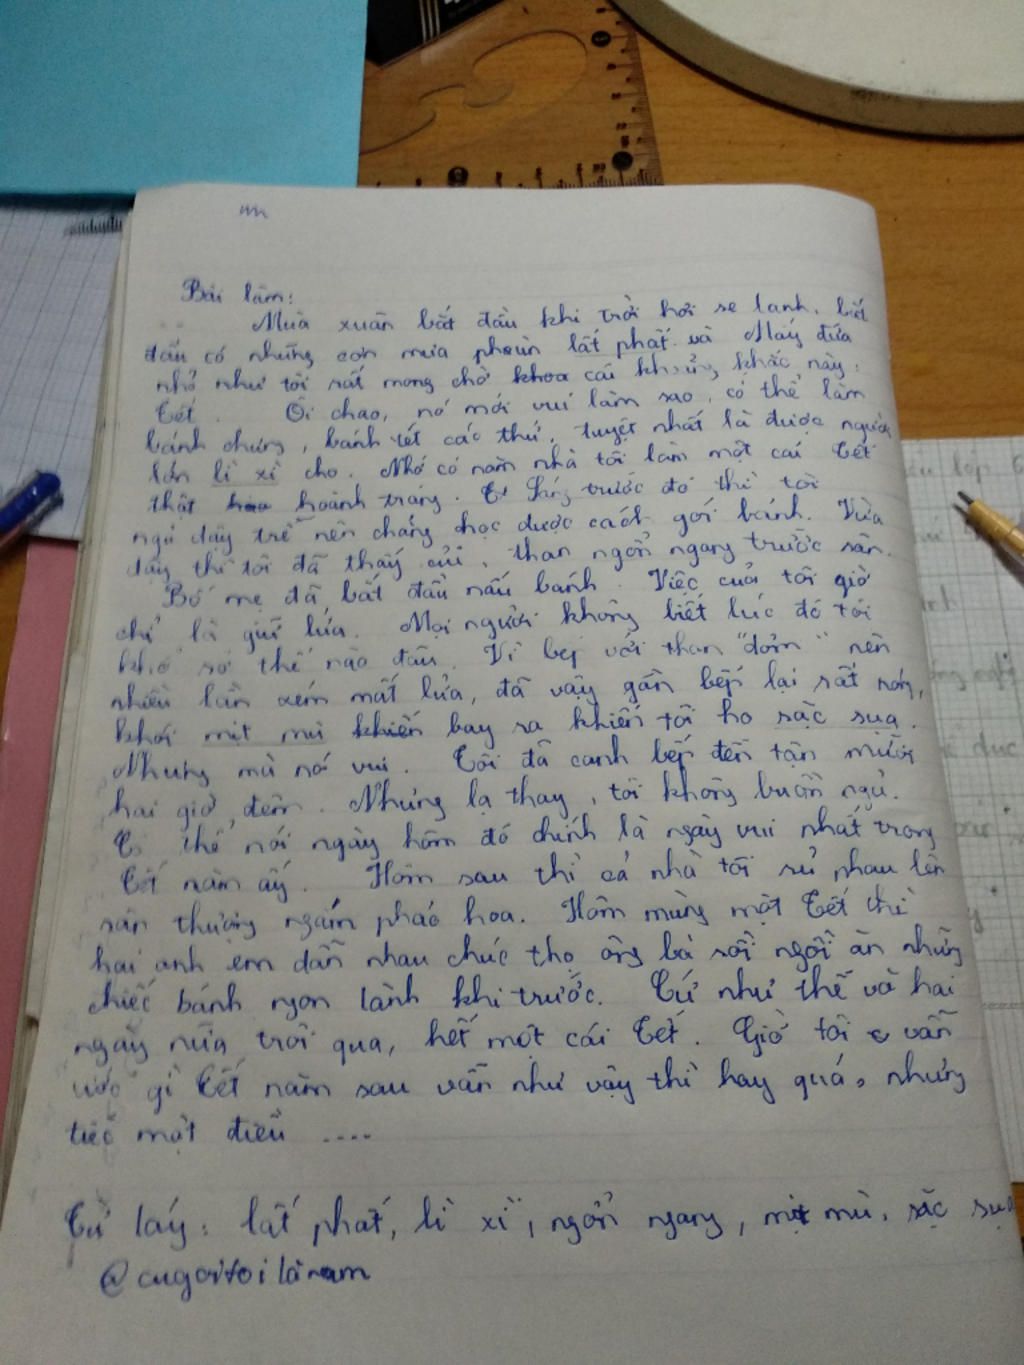 Bài làm:
Mùa xuân bắt đầu khi trời hơi se lạnh, bắt
đầu có những cơn mưa phùn lất phất và Mấy đứa
nhỏ như tôi rất mong chờ khoa cái khoảng khắc này:
Tết. Ôi chao, nó mới vui làm sao, có thể làm
bánh chưng, bánh tét các thứ, tuyệt nhất là được người
lớn lì xì cho. Nhớ có năm nhà tôi làm một cái Tết
thật hoành tráng. Sáng trước đó thì tôi
ngủ dậy trễ nên chẳng học được cách gói bánh. Vừa
dậy thì tôi đã thấy củi, than ngổn ngang trước sân.
Bố mẹ đã bắt đầu nấu bánh. Việc của tôi giờ
chỉ là giữ lửa. Mọi người không biết lúc đó tôi
khổ sở thế nào đâu. Vì bếp với than "dỏm" nên
nhiều lần xém mất lửa, đã vậy gần bếp lại rất nóng,
khói mịt mù khiến bay ra khiến tôi ho sặc sụa.
Nhưng mà nó vui. Tôi đã canh bếp đến tận mười
hai giờ đêm. Nhưng lạ thay, tôi không buồn ngủ.
Có thể nói ngày hôm đó chính là ngày vui nhất trong
Tết năm ấy. Hôm sau thì cả nhà tôi rủ nhau lên
sân thượng ngắm pháo hoa. Hôm mùng một Tết thì
hai anh em dẫn nhau chúc thọ ông bà rồi ngồi ăn những
chiếc bánh ngon lành khi trước. Cứ như thế và hai
ngày nữa trôi qua, hết một cái Tết. Giờ tôi vẫn
ước gì Tết năm sau vẫn như vậy thì hay quá, nhưng
tiếc một điều ....
Từ láy: lất phất, lì xì, ngổn ngang, mịt mù, sặc sụa
@cugoitoilanam